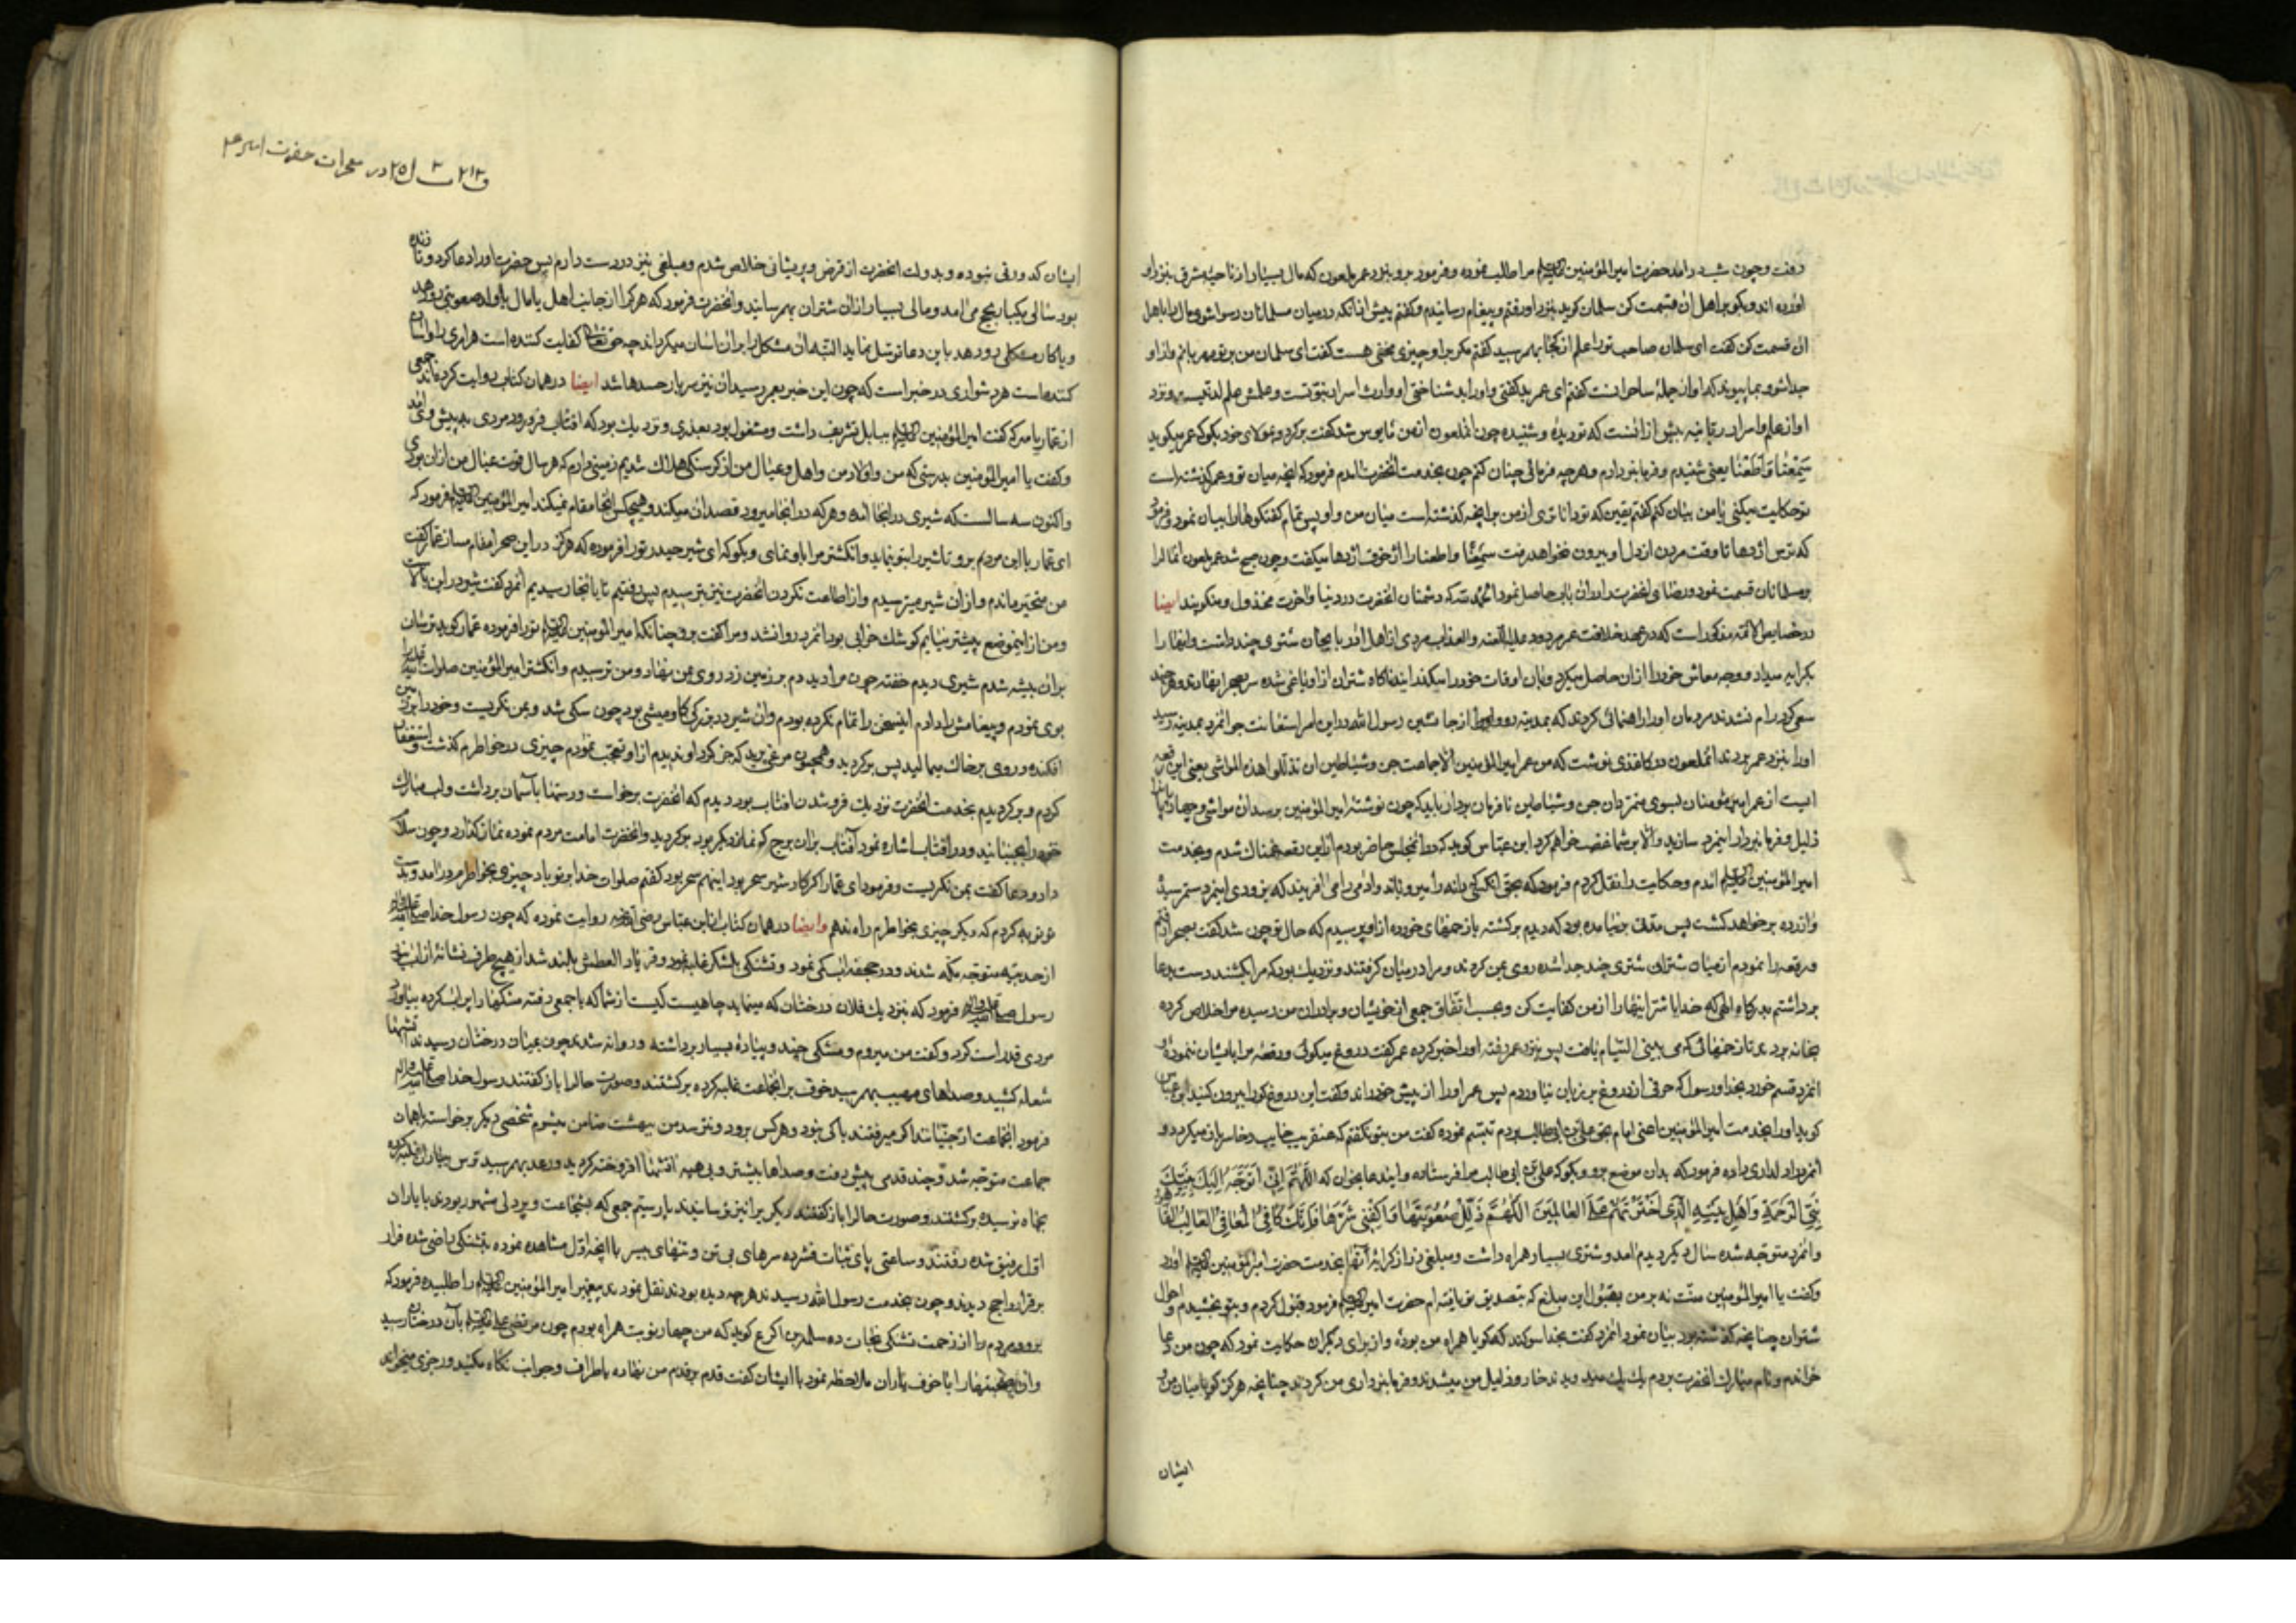 رفت و چون شب درآمد حضرت امیرالمؤمنین علیه‌السلم مرا طلب نموده و فرمود برو بنزد عمر ملعون که مال بسیار از ناحیه مشرق بنزد او
آورده اند و بکو بر اهل ان قسمت کن سلمان کوید بنزد او رفتم و پیغام رسانیدم و کفتم پیش از انکه در میان مسلمانان رسوا شوی مال را با اهل
ان قسمت کن کفت ای سلمان صاحب ترا علم از کجا بهم رسید کفتم مکر بر او چیزی مخفی هست کفت ای سلمان من بر تو مهربانم و از او
جدا شو و بما پیوند که او از جمله ساحرانست کفتم ای عمر بد کفتی و او را بد شناختی او وارث اسرار نبوتست و علمش علم لدنیست و نزد
او از علم و اسرار ربانیه بیش از انست که تو دیدهٔ و شنیدهٔ چون انملعون از من مأیوس شد کفت برکرد و بمولای خود بکو که عمر میکوید
سَمِعْنَا وَاَطَعْنَا یعنی شنیدم و فرمانبردارم و هر چه فرمائی چنان کنم چون بخدمت انحضرت امدم فرمود که انچه میان تو و عمر کذشته است
تو حکایت میکنی یا من بیان کنم کفتم یقین که تو داناتری از من بر انچه کذشته است میان من و او پس تمام کفتکوها را بیان نمود و فرمود
که ترس اژدها تا وقت مردن از دل او بیرون نخواهد رفت سَمِعْنا و اطعنا را از خوف اژدها میکفت و چون صبح شد عمر ملعون انمال را
بر مسلمانان قسمت نمود و رضای انحضرت را در ان باب حاصل نمود الحمد لله که دشمنان انحضرت در دنیا و آخرت مخذول و منکوبند ایضا
در خصایص الائمه مذکور است که در عهد خلافت عمر مردود علیه اللعنه و العذاب مردی از اهل اذربایجان شتری چند داشت و انها را
بکرایه میداد و وجه معاش خود را از ان حاصل میکرد و بان اوقات خود را میکذرانید ناکاه شتران از او یاغی شده سر بصحرا نهادند و هر چند
سعی کرد رام نشدند مردمان او را راهنمائی کردند که بمدینه رو و از جانشین رسول الله در این امر استغاثت جو انمرد بمدینه رسید
او را بنزد عمر بردند انملعون در کاغذی نوشت که من عمر امیرالمؤمنین الا جماعت جن و شیاطین ان تذللوا هذه المواشی یعنی این رقعه
ایست از عمر امیر مؤمنان بسوی متمردان جن و شیاطین نافرمان بردار باید که چون نوشته امیرالمؤمنین برسد ان مواشی و چهارپا
ذلیل و فرمانبردار اینمرد سازید و الا بر شما غضب خواهم کرد ابن عباس کوید که در انمجلس حاضر بودم از این رقعه غمناک شدم و بخدمت
امیرالمؤمنین علیه‌السلم امدم و حکایت را نقل کردم فرمود که بحق انکسی که دانه را میرویاند و ادمی را می افریند که بزودی اینمرد ستم رسیدهٔ
و ازرده بر خواهد کشت پس مدتی بر نیامده بود که دیدم برکشته با زخمهای خورده از او پرسیدم که حال تو چون شد کفت بصحرا رفتم
و رقعه را نمودم از میان شتران شتری چند جدا شده روی بمن کردند و مرا در میان کرفتند و نزدیک بود که مرا بکشند دست بدعا
برداشتم بدرکاه الهی که خدایا شر اینها را از من کفایت کن و بحسب اتفاق جمعی از خویشان و برادران من رسیده مرا خلاص کرده
بخانه بردند تا زخمهائی که می بینی التیام یافت پس بنزد عمر رفته او را خبر کرده عمر کفت دروغ میکوئی و رقعهٔ مرا بایشان ننمودهٔ
انمرد قسم خورد بخدا و رسول که حرفی از دروغ بر زبان نیاوردم پس عمر او را از پیش خود راند و کفت این دروغ کو را بیرون کنید ابن عباس
کوید او را بخدمت امیرالمؤمنین اعنی امام بحق علی بن ابی‌طالب بردم تبسم نموده کفت من بتو نکفتم که عنقریب خایب و خاسر باز میکردد و
انمرد را دلداری داده فرمود که بدان موضع برو و بکو که علی بن ابی طالب مرا فرستاده و ایندعا بخوان که اَللّٰهُمَّ اِنّی اَتَوَجَّهُ اِلَیْکَ بِنَبِیِّکَ
نَبِیِّ الرَّحْمَةِ وَ اَهْلِ بَیْتِهِ الَّذی اخْتَرْتَهُمْ عَلَی الْعٰالَمینَ اَللّٰهُمَّ ذَلِّلْ صُعُوبَتَهٰا وَ اکْفِنی شَرَّهٰا فَاِنَّکَ الْکٰافِی الْمُعٰافِی الْغٰالِبُ الْقٰاهِر
و انمرد متوجه شده سال دیکر دیدم امد و شتری بسیار همراه داشت و مبلغی زر از کرایهٔ آنها بخدمت حضرت امیرالمؤمنین علیه‌السلم اورد
و کفت یا امیرالمؤمنین منت نه بر من بقبول این مبلغ که بتصدیق تو یافته ام حضرت امیر علیه‌السلم فرمود قبول کردم و بتو بخشیدم و احوال
شتران چنانچه کذشته بود بیان نمود انمرد کفت بخدا سوکند که کویا همراه من بودهٔ و از برای دیکران حکایت نمود که چون من دعا
خواندم و نام مبارک انحضرت بردم یک یک میدویدند خار و ذلیل من میشدند و فرمانبرداری من کردند چنانچه هرکز کویا میان من و
ایشان
ف ٢١٣ ٣ ل ٢٥ در معجزات حضرت امیر ع
ایشان کدورتی نبوده و بدولت انحضرت از قرض و پریشانی خلاص شدم و مبلغی نیز در دست دارم پس حضرت او را دعا کرد و تا زنده
بود سالی یکبار بحج می امد و مالی بسیار از ان شتران بهم رسانید و انحضرت فرمود که هر کرا از جانب اهل یا مال یا اولاد صعوبتی رو دهد
و یا کار مشکلی رو دهد باین دعا توسل نماید البته ان مشکل را بر ان اسان میکرداند چه حق تعالی کفایت کننده است هر امری را و اسان
کننده است هر دشواری در خبر است که چون این خبر بعمر رسید ان نیز سربار حسدها شد ایضا در همان کتاب روایت کرده‌اند جمعی
از عمار یاسر که کفت امیرالمؤمنین علیه‌السلم ببابل تشریف داشت و مشغول بود بعذری و نزدیک بود که افتاب فرو رود مردی به پیش وی آمد
و کفت یا امیرالمؤمنین بدرستی که من و اولاد من و اهل و عیال من از کرسنکی هلاک شدیم زمینی دارم که هر سال قوت عیال من از ان بودی
و اکنون سه سالست که شیری در انجا امده و هر که در انجا میرود قصد ان میکند و هیچکس انجا مقام نمیکند امیرالمؤمنین علیه‌السلم فرمود که
ای عمار با این مردم برو تا شیر را بتو بنماید و انکشتر مرا باو نمای و بکو که ای شیر حیدر ترا فرموده که هرکز در این صحرا مقام مساز عمار کفت
من متحیر ماندم و از ان شیر میترسیدم و از اطاعت نکردن انحضرت نیز ترسیدم پس رفتیم تا بانجا رسیدیم انمرد کفت شیر در این بالاست
و من از اینموضع پیشتر نیایم کوشک خرابی بود انمرد روانشد و مرا کفت برو چنانکه امیرالمؤمنین علیه‌السلم ترا فرموده عمار کوید ترسان
بر ان بیشه شدم شیری دیدم خفته چون مرا دید دم بر زمین زد روی بمن نهاد و من ترسیدم و انکشتر امیرالمؤمنین صلوات الله علیه
بوی نمودم و پیغامش را دادم اینسخن را تمام نکرده بودم و ان شیر در بزرکی کاومیشی بود چون سکی شد و بمن نکریست و خود را بر زمین
افکنده و روی بر خاک میمالید پس برکردید و همچون مرغی پرید که جز کرد او ندیدم از او تعجب نمودم چیزی در خواطرم کذشت و استغفار
کردم و برکردیدم بخدمت انحضرت نزدیک فرو شدن افتاب بود دیدم که انحضرت برخواست و دستها بآسمان برداشت و لب مبارک
خود را بجنبانید و در افتاب اشاره نمود آفتاب بر ان برج که نماز دیکر بود برکردید و انحضرت امامت مردم نموده نماز کذارد و چون سلام
داد و دعا کفت بمن نکریست و فرمود ای عمار اکر کار شیر سحر بود اینهم سحر بود کفتم صلوات خدا بر تو باد چیزی بخواطرم درامد و بدست
تو توبه کردم که دیکر چیزی بخواطرم راه ندهم و ایضا در همان کتاب از ابن عباس رضی الله عنه روایت نموده که چون رسول خدا صلی الله علیه و اله
از حدیبیه متوجه مکه شدند و در جحفه آب کمی نمود و تشنکی بلشکر غلبه نمود و فریاد العطش بلند شد از هیچ طرف نشانه از آب
رسول صلی الله علیه و اله فرمود که بنزدیک فلان درختان که مینماید چاهیست کیست از شما که با جمعی رفته مشکها را پر آب کرده بیاورد
مردی قد راست کرد و کفت من میروم و مشکی چند و پیادهٔ بسیار برداشته و روانه شد چون بمیان درختان رسیدند آتشها
شعله کشید و صداهای مهیب بهم رسید خوف بر انجماعت غلبه کرده برکشتند و صورت حال را باز کفتند رسول خدا صلی الله علیه و اله
فرمود انجماعت از جنیانند اکر میرفتند باکی نبود و هر کس برود و نترسد من بهشت ضامن میشوم شخصی دیکر برخواسته با همان
جماعت متوجه شد و چند قدمی پیش رفت و صداها بیشتر و بی هیمه آتشها افروخته کردید و رعد بهم رسید ترس بیاران غلبه کرده
بچاه نرسیده برکشتند و صورت حال را باز کفتند دیکری را نیز ترسانیدند بار سیم جمعی که بشجاعت و پردلی مشهور بودند با یاران
اول رفیق شده رفتند و ساعتی پای ثبات فشرده سرهای بی تن و تنهای بیسر با انچه اول مشاهده نموده بتشنکی راضی شده فرار
بر قرار راجح دیدند و چون بخدمت رسول الله رسیدند هر چه دیده بودند نقل نمودند پیغمبر امیرالمؤمنین علیه‌السلم را طلبیده فرمود که
برو و مردم را از زحمت تشنکی نجات ده سلمة بن اکوع کوید که من چهار نوبت همراه بودم چون مرتضی علی علیه‌السلم بآن درختان رسید
و ان هیبتها را با خوف یاران ملاحظه نمود با ایشان کفت قدم بر قدم من نهاده باطراف و جوانب نکاه مکنید و رجزی میخواند